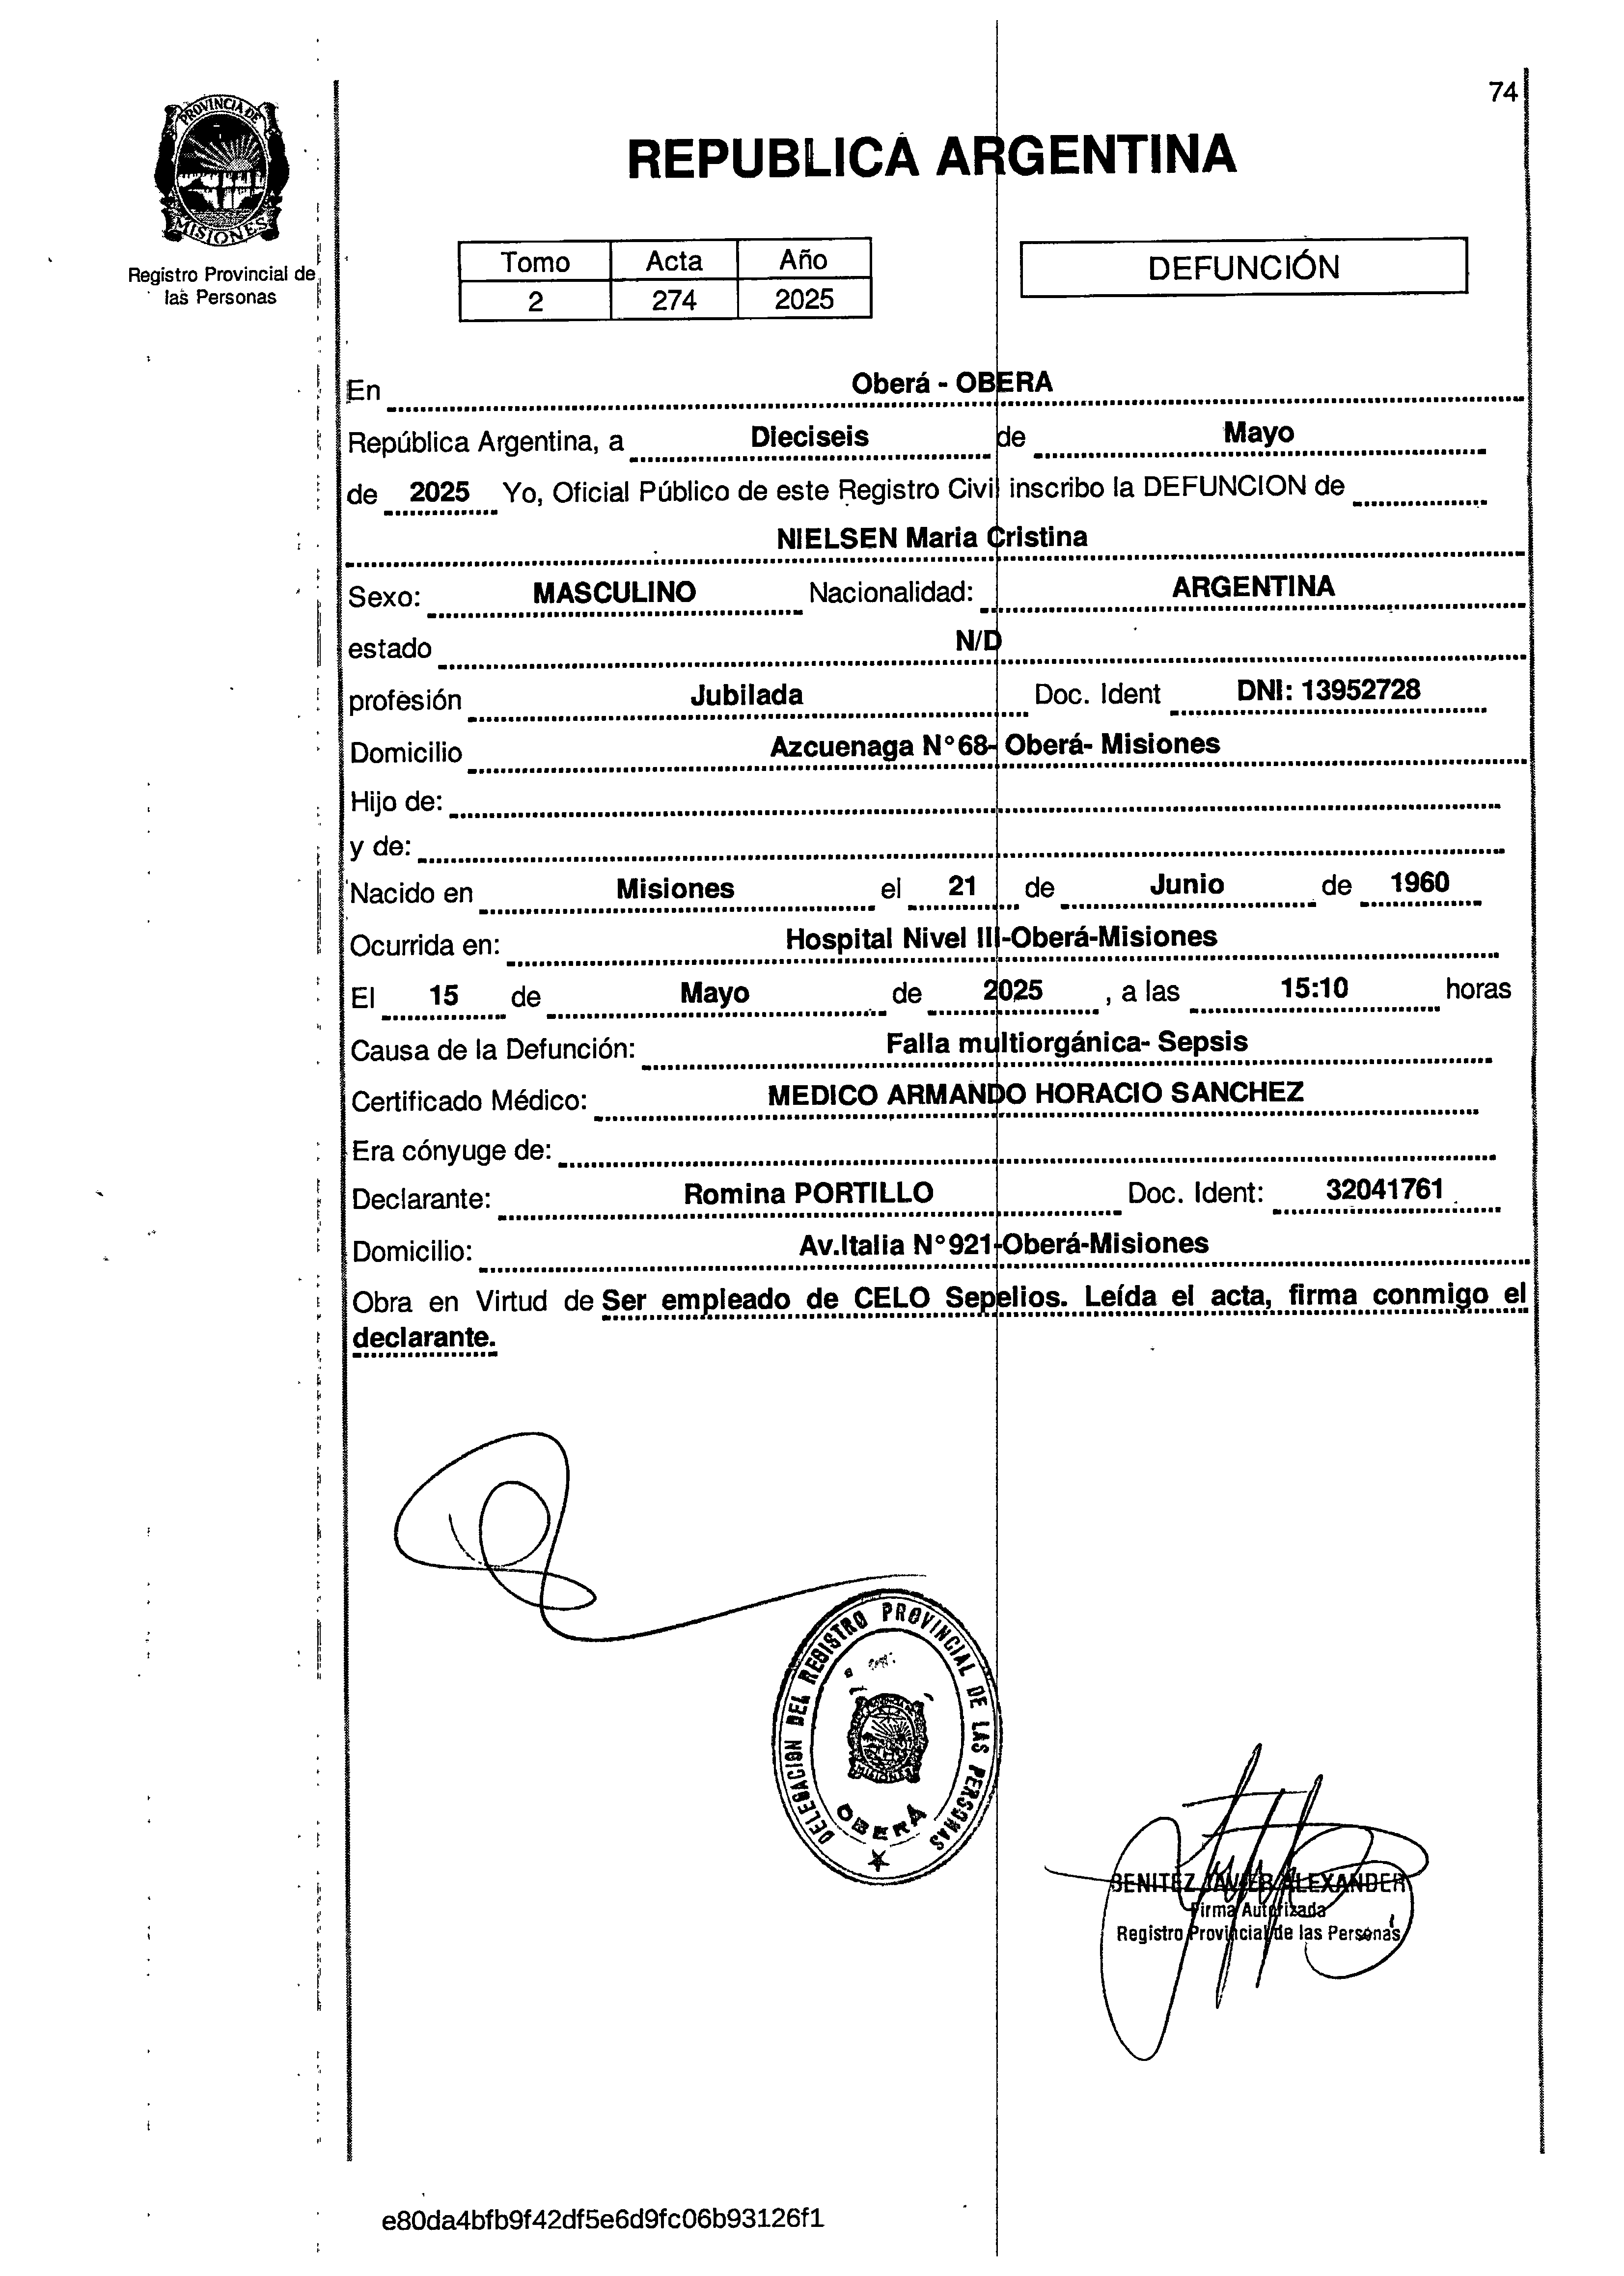 74
PROVINCIA DE
MISIONES
Registro Provincial de
las Personas
REPUBLICA ARGENTINA
Tomo Acta Año
2 274 2025
DEFUNCIÓN
En Oberá - OBERA
República Argentina, a Dieciseis de Mayo
de 2025 Yo, Oficial Público de este Registro Civil inscribo la DEFUNCION de
NIELSEN Maria Cristina
Sexo: MASCULINO Nacionalidad: ARGENTINA
estado N/D
profesión Jubilada Doc. Ident DNI: 13952728
Domicilio Azcuenaga N°68- Oberá- Misiones
Hijo de:
y de:
Nacido en Misiones el 21 de Junio de 1960
Ocurrida en: Hospital Nivel III-Oberá-Misiones
El 15 de Mayo de 2025 , a las 15:10 horas
Causa de la Defunción: Falla multiorgánica- Sepsis
Certificado Médico: MEDICO ARMANDO HORACIO SANCHEZ
Era cónyuge de:
Declarante: Romina PORTILLO Doc. Ident: 32041761
Domicilio: Av.Italia N°921-Oberá-Misiones
Obra en Virtud de Ser empleado de CELO Sepelios. Leída el acta, firma conmigo el
declarante.
DELEGACION DEL REGISTRO PROVINCIAL DE LAS PERSONAS
MISIONES
OBERÁ
BENITEZ JAVIER ALEXANDER
Firma Autorizada
Registro Provincial de las Personas
e80da4bfb9f42df5e6d9fc06b93126f1